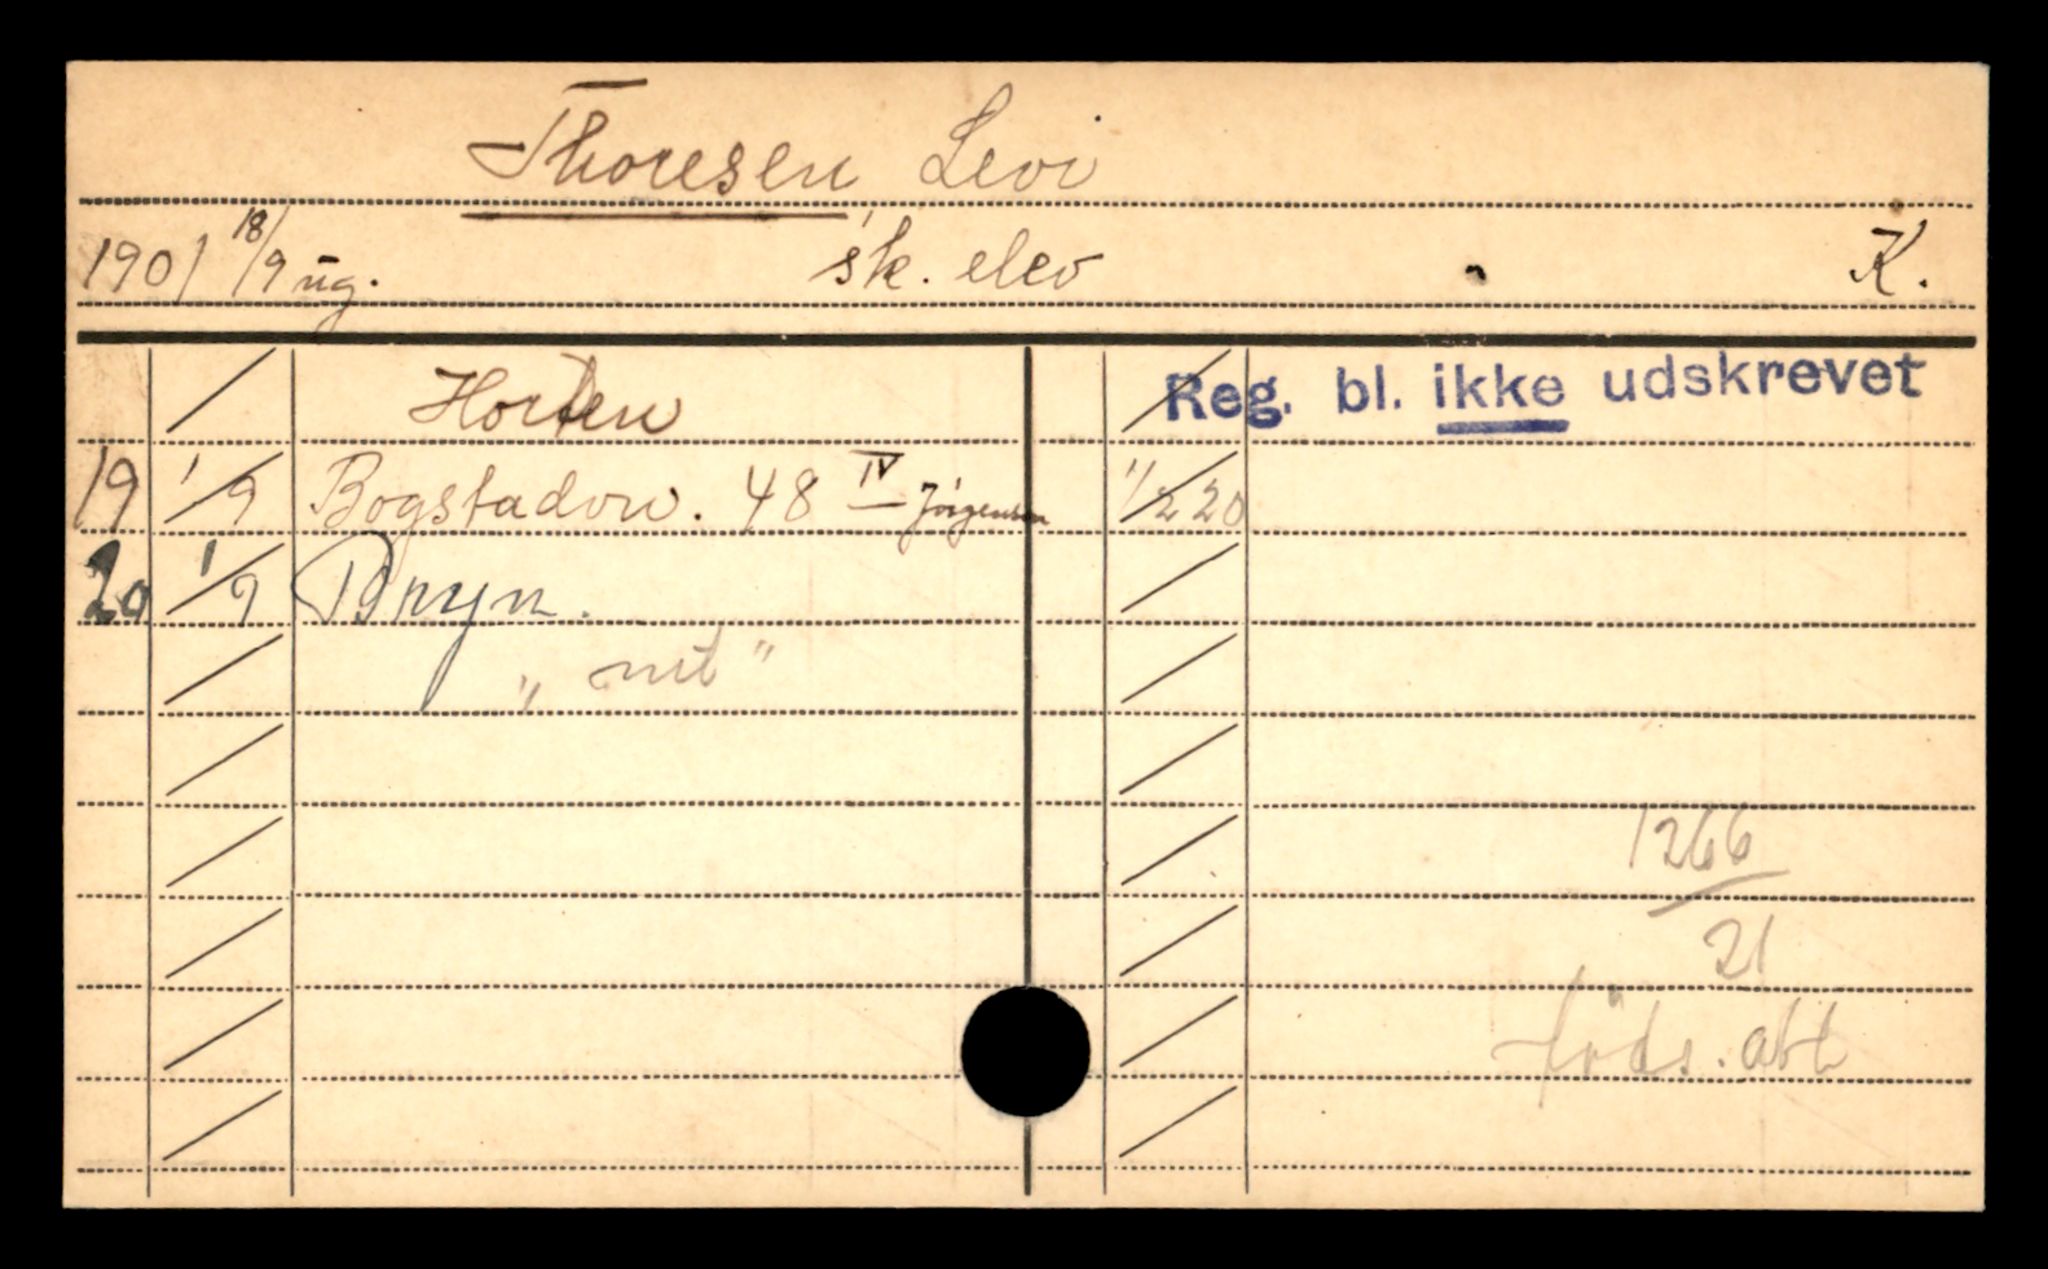 Thoresen Levi
1901 18/9 ug. sk. elev K.
Horten Reg. bl. ikke udskrevet
19 1/9 Bogstadvv. 48 IV Jörgensen 1/2 20
20 1/9 Bryn.
1266
21
föds. att